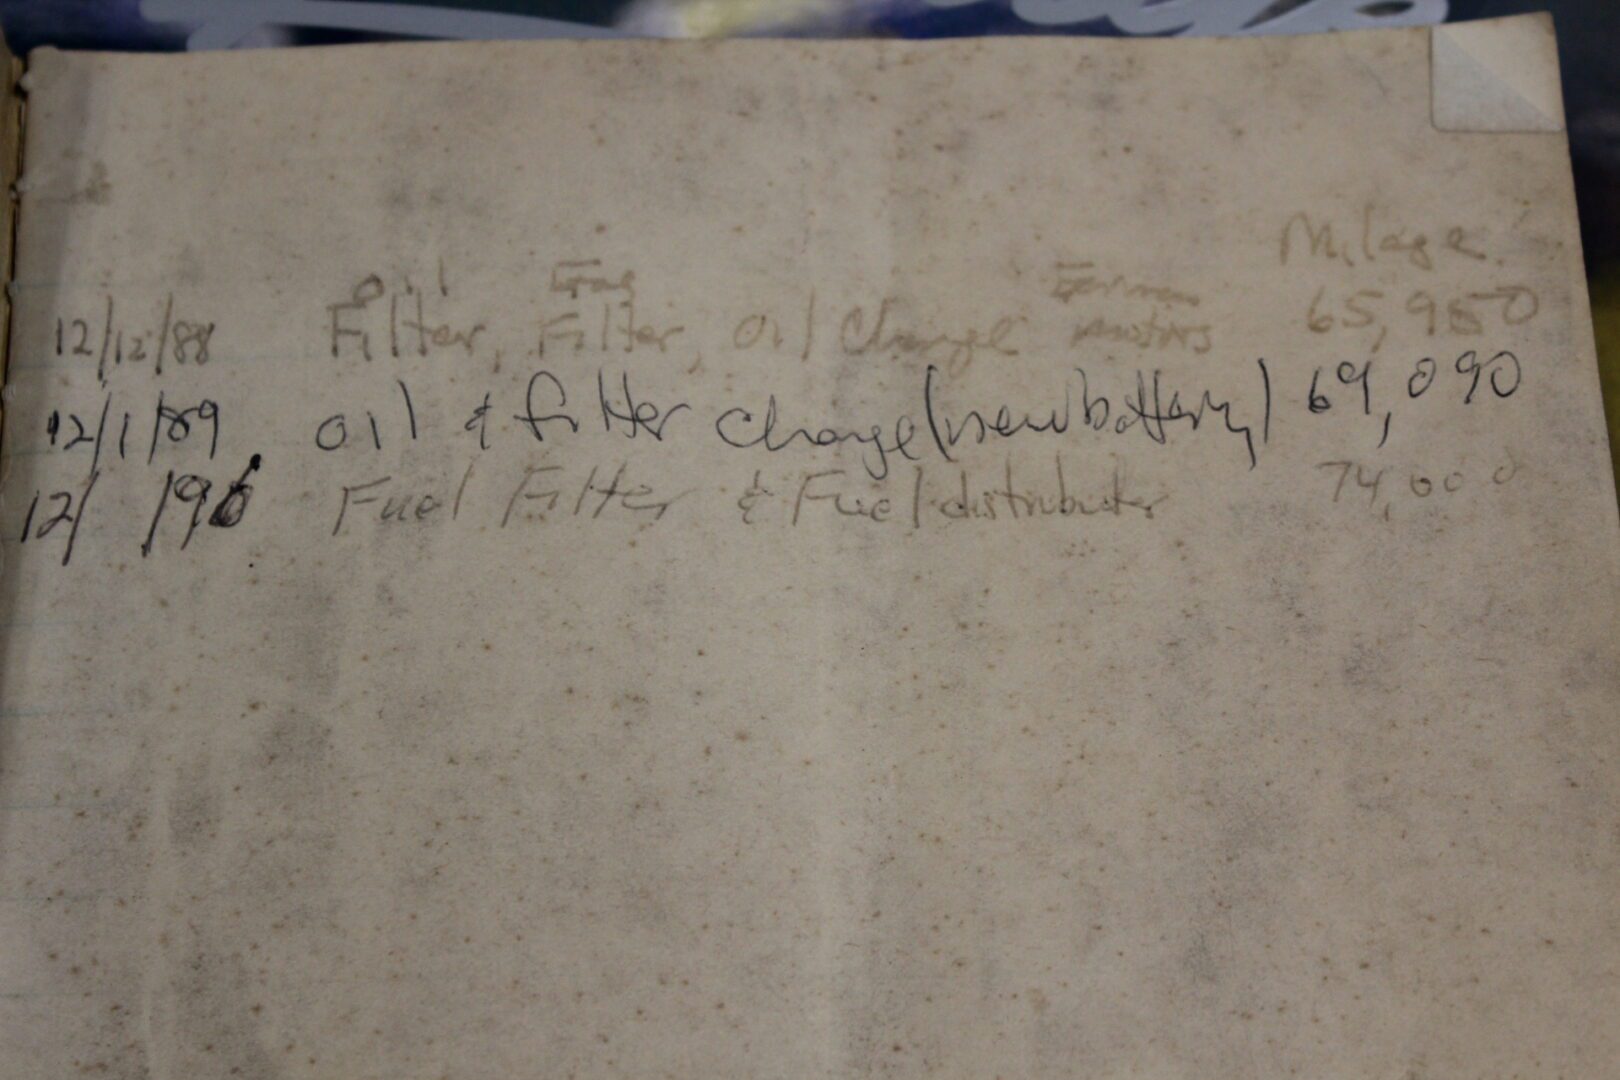 Milage
oil
12/12/88 Filter, Filter, oil change motors 65,950
12/1/89 oil & filter change (new battery) 69,090
12/ /90 Fuel Filter & Fuel distributer 74,000